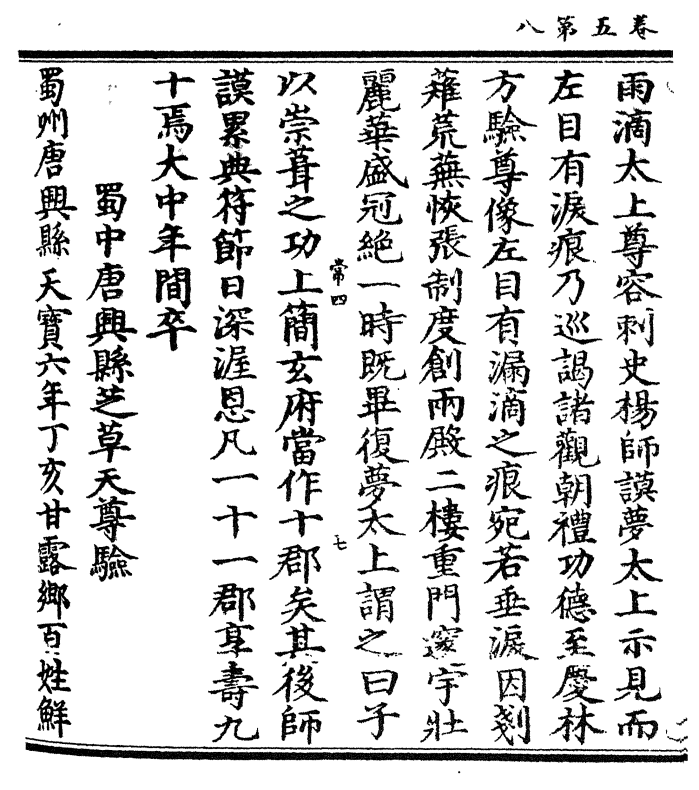 卷五第八
雨滴太上尊容刺史楊師謨夢太上示見而
左目有淚痕乃巡謁諸觀朝禮功德至慶林
方驗尊像左目有漏滴之痕宛若垂淚因剗
薙荒蕪恢張制度創兩殿二樓重門邃宇壯
麗華盛冠絶一時既畢復夢太上謂之曰子
常四
七
以崇葺之功上簡玄府當作十郡矣其後師
謨累典符節日深渥恩凡一十一郡享壽九
十焉大中年間卒
蜀中唐興縣芝草天尊驗
蜀州唐興縣天寶六年丁亥甘露鄉百姓鮮